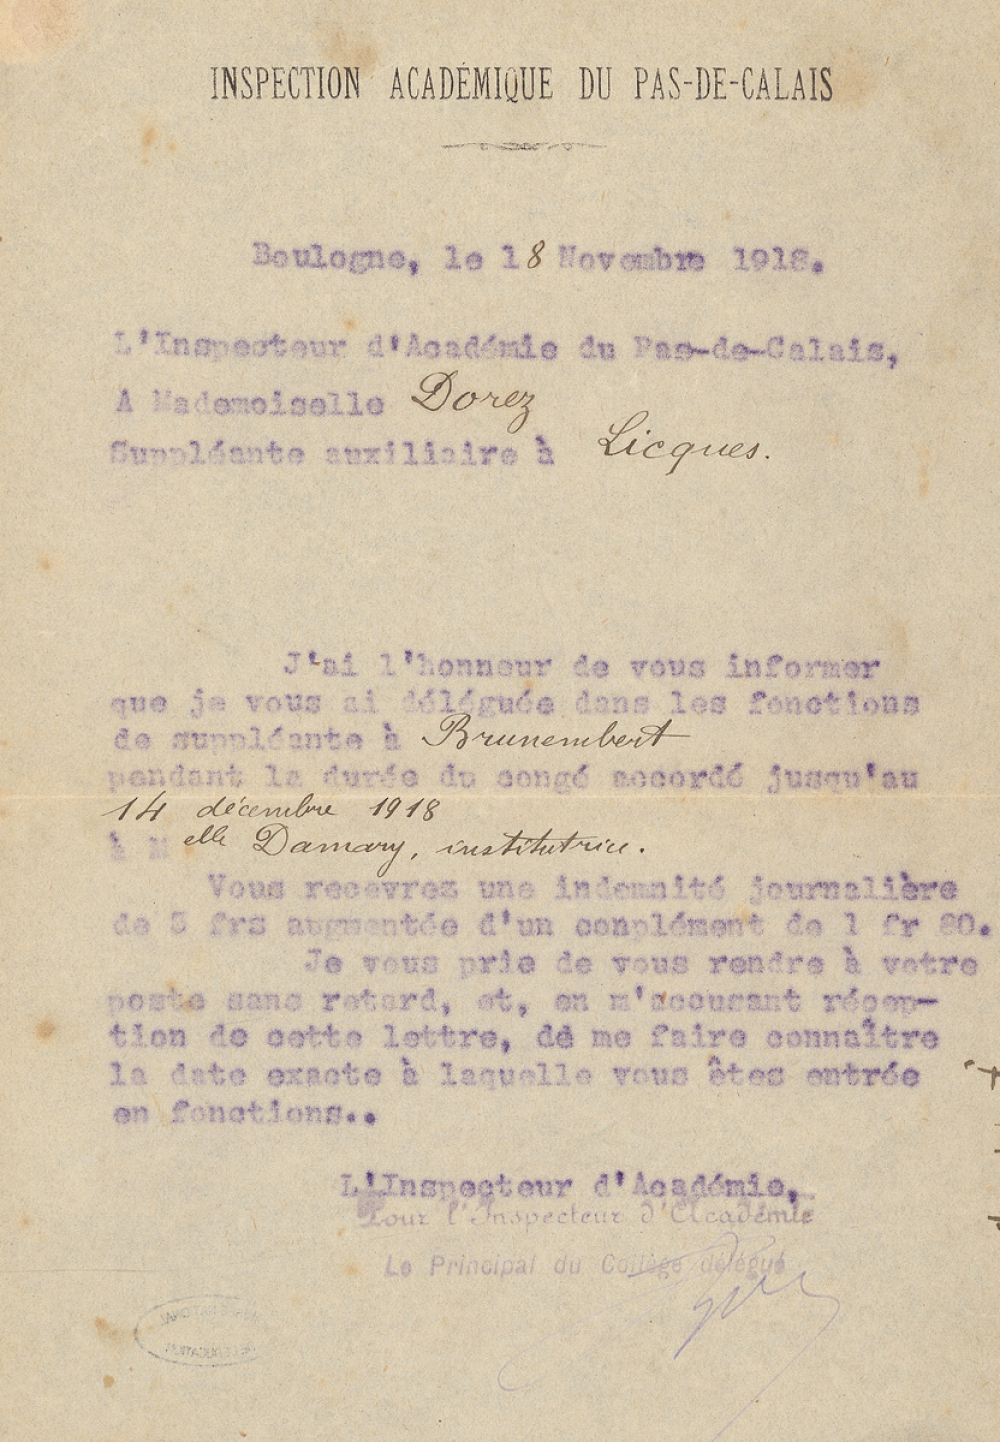 INSPECTION ACADÉMIQUE DU PAS-DE-CALAIS
Boulogne, le 18 Novembre 1918.
L'Inspecteur d'Académie du Pas-de-Calais,
A Mademoiselle Dorez
Suppléante auxiliaire à Licques.
J'ai l'honneur de vous informer
que je vous ai déléguée dans les fonctions
de suppléante à Brunembert
pendant la durée du congé accordé jusqu'au
14 décembre 1918
à Melle Damary, institutrice.
Vous recevrez une indemnité journalière
de 5 frs augmentée d'un complément de 1 fr 80.
Je vous prie de vous rendre à votre
poste sans retard, et, en m'accusant récep-
tion de cette lettre, de me faire connaître
la date exacte à laquelle vous êtes entrée
en fonctions..
L'Inspecteur d'Académie,
Pour l'Inspecteur d'Académie
Le Principal du Collège délégué